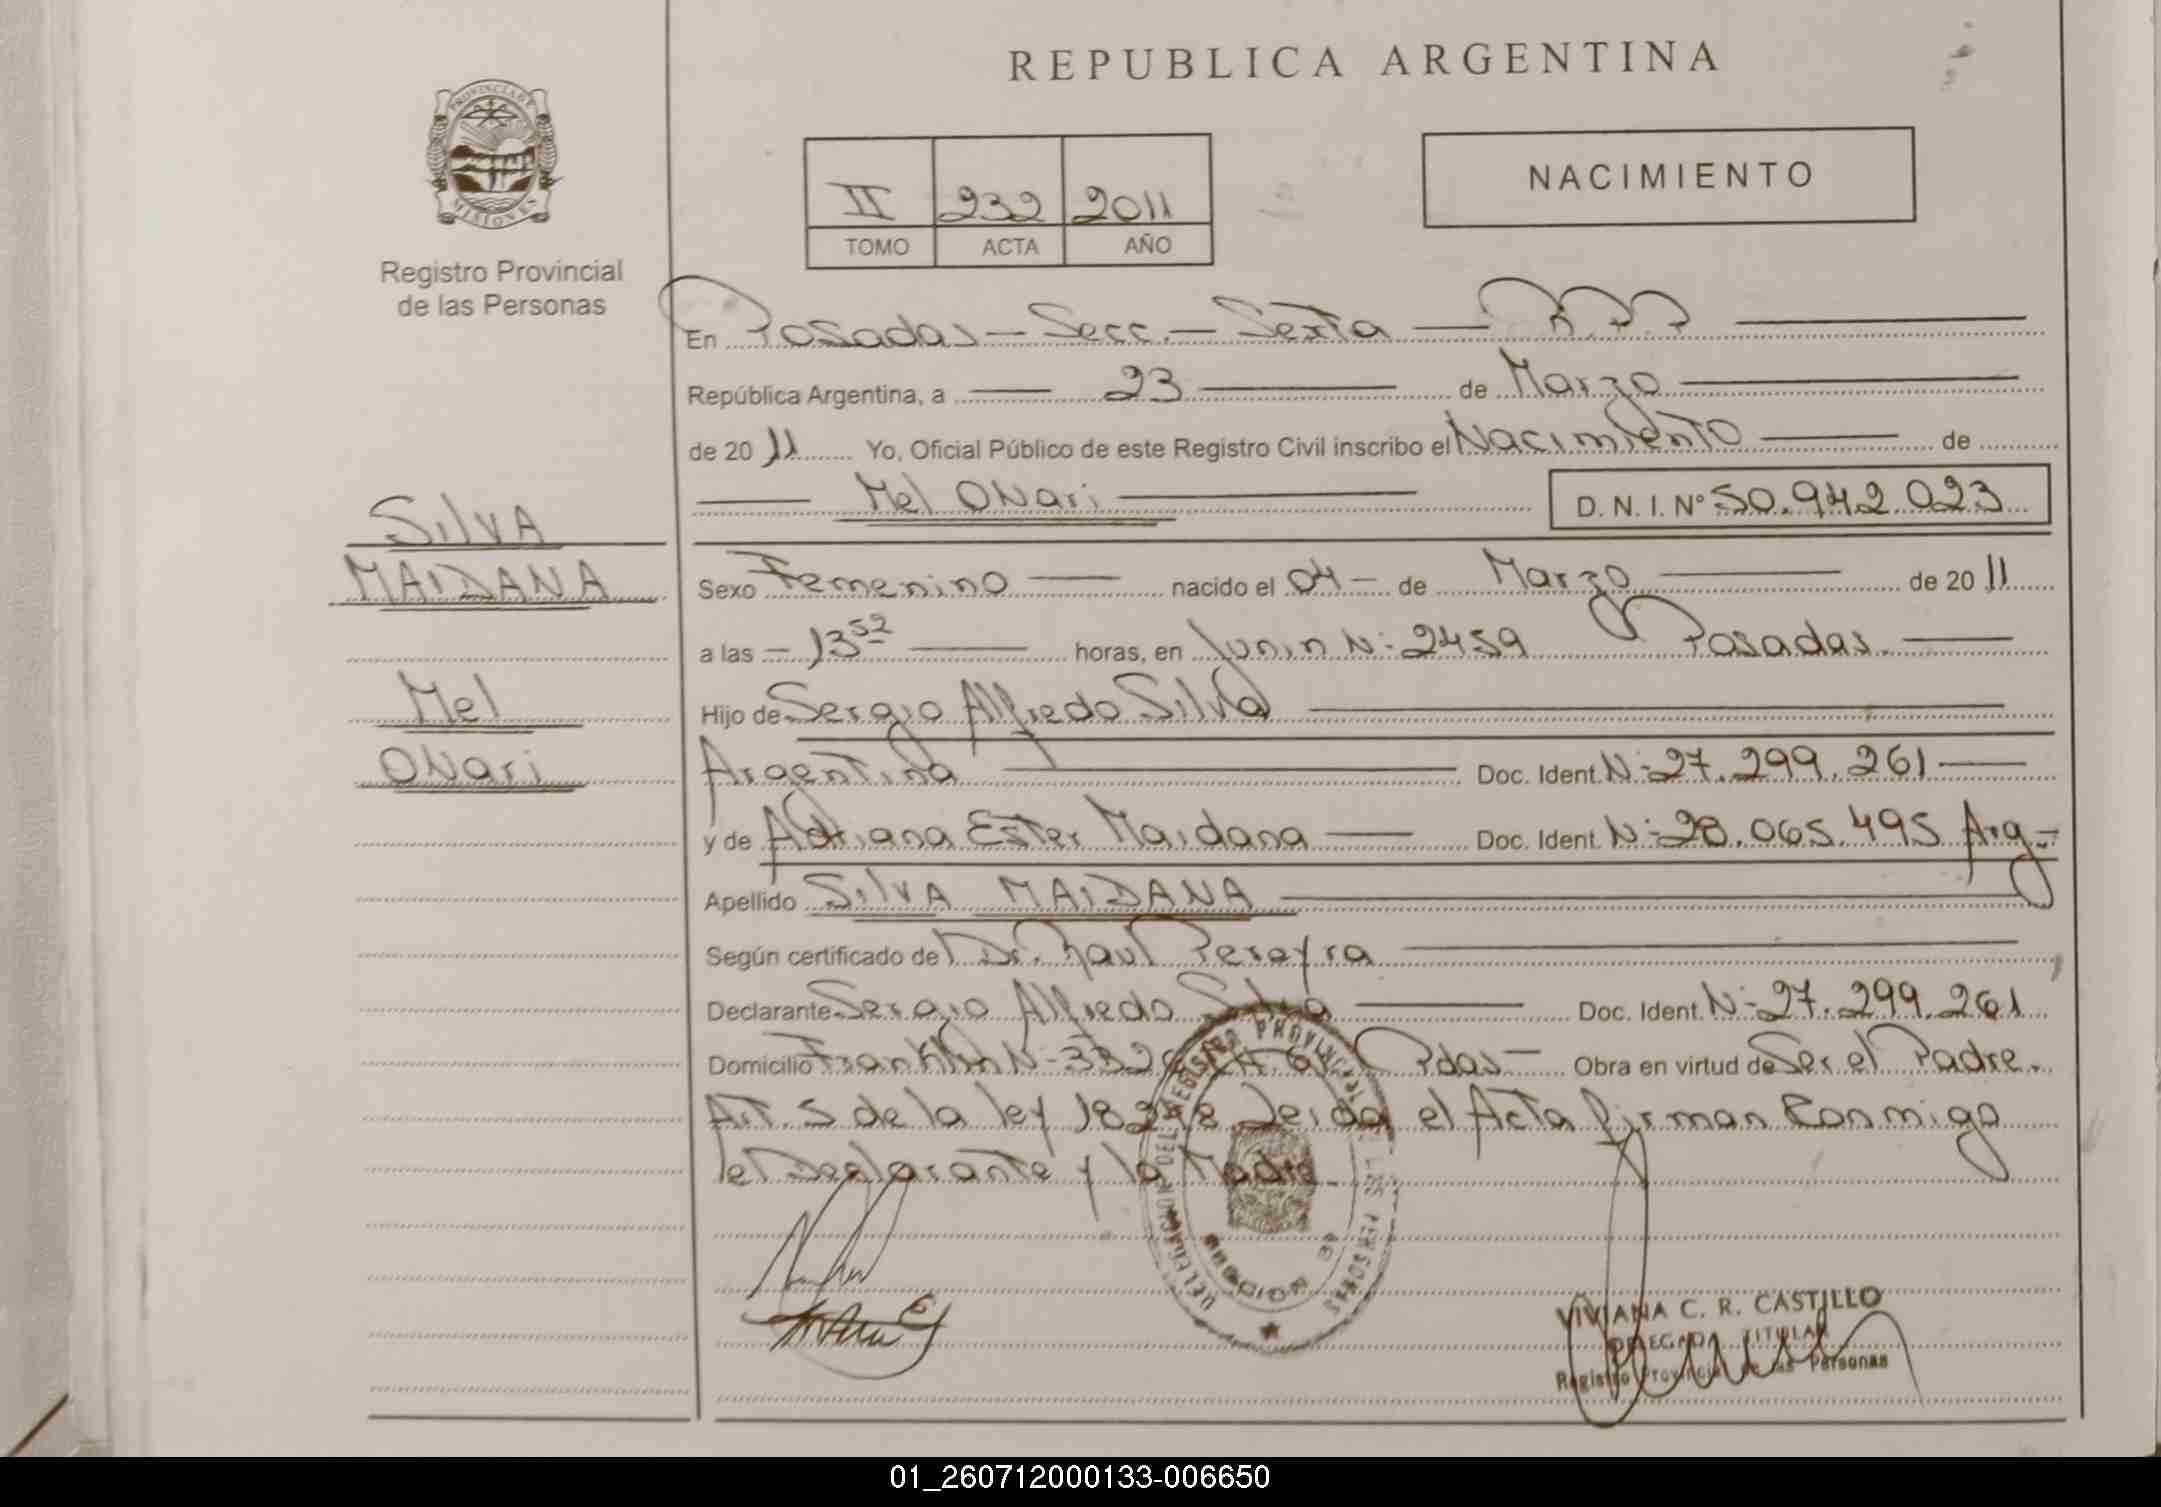 REPUBLICA ARGENTINA
PROVINCIA DE
MISIONES
Registro Provincial
de las Personas
II 232 2011
TOMO ACTA AÑO
NACIMIENTO
En Posadas - Secc. - Sexta - R.P.P
República Argentina, a 23 de Marzo
de 2011 Yo, Oficial Público de este Registro Civil inscribo el Nacimiento de
Mel ONari D. N. I. N° 50.942.023
SILVA
MAIDANA
Mel
ONari
Sexo Femenino nacido el 04 - de Marzo de 2011
a las - 13 52 horas, en Junin N: 2459 Posadas.
Hijo de Sergio Alfredo Silva
Argentina Doc. Ident. N: 27.299.261
y de Adriana Ester Maidana Doc. Ident. N: 28.065.495 Arg-
Apellido SILVA MAIDANA
Según certificado de Dr. Raul Pereyra
Declarante Sergio Alfredo Silva Doc. Ident. N: 27.299.261
Domicilio Franklin N: Pdas- Obra en virtud de Ser el Padre.
Art. 5 de la ley 18248 Leida el Acta firman Conmigo
el Declarante y la Madre.
DELEGACION DEL REGISTRO PROVINCIAL DE LAS PERSONAS
VIVIANA C. R. CASTILLO
DELEGADA TITULAR
Registro Provincial de las Personas
01_260712000133-006650